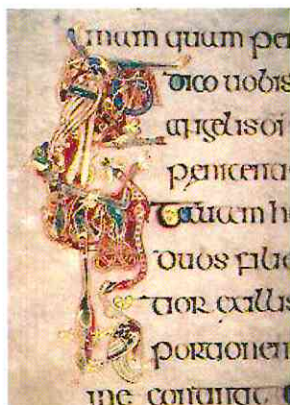 mam quam per
dico uobis
angelis di
penitentia
autem h
duos filio
tior exillis
portionem
me contingit